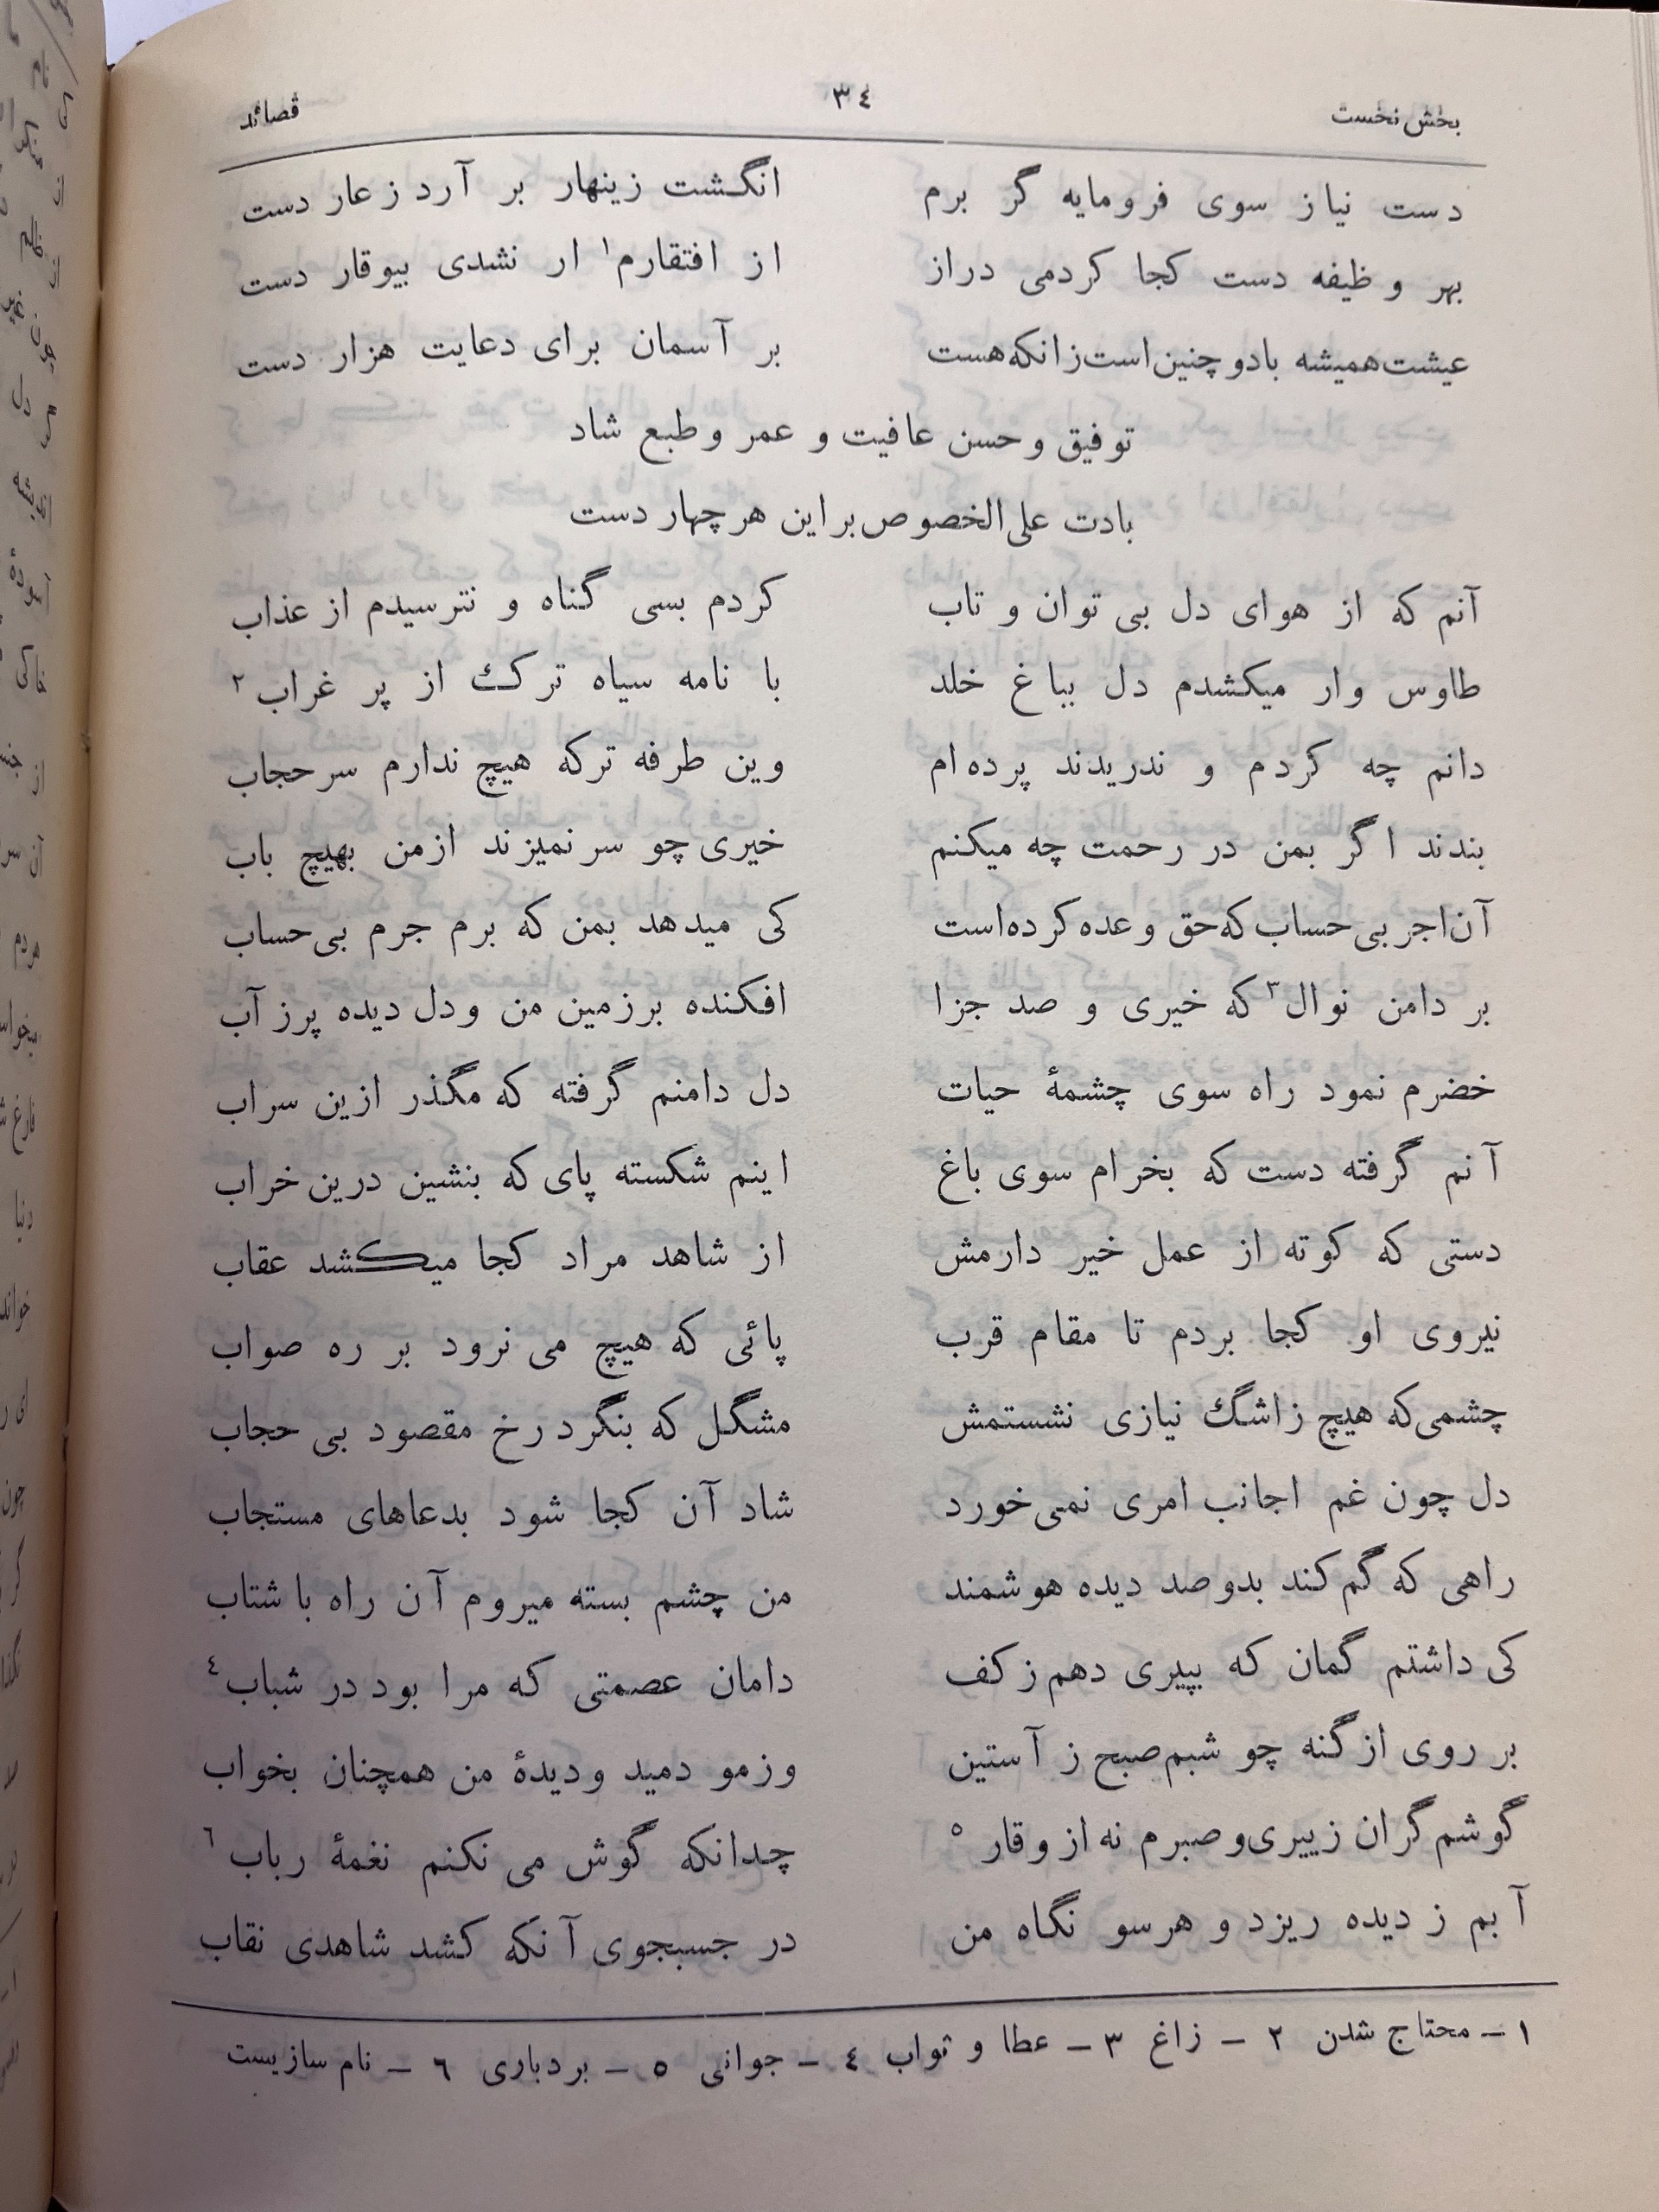 بخش نخست ٣٤ قصائد
دست نیاز سوی فرومایه گر برم انگشت زینهار بر آرد ز عار دست
بهر وظیفه دست کجا کردمی دراز از افتقارم١ ار نشدی بیوقار دست
عیشت همیشه بادو چنین است زانکه هست بر آسمان برای دعایت هزار دست
توفیق و حسن عافیت و عمر و طبع شاد
بادت علی‌الخصوص بر این هر چهار دست
آنم که از هوای دل بی توان و تاب کردم بسی گناه و نترسیدم از عذاب
طاوس وار میکشدم دل بباغ خلد با نامه سیاه ترک از پر غراب٢
دانم چه کردم و ندریدند پرده‌ام وین طرفه ترکه هیچ ندارم سر حجاب
بندند اگر بمن در رحمت چه میکنم خیری چو سر نمیزند از من بهیچ باب
آن اجر بی حساب که حق وعده کرده است کی میدهد بمن که برم جرم بی حساب
بر دامن نوال٣ که خیری و صد جزا افکنده بر زمین من و دل دیده پر ز آب
خضرم نمود راه سوی چشمهٔ حیات دل دامنم گرفته که مگذر ازین سراب
آنم گرفته دست که بخرام سوی باغ اینم شکسته پای که بنشین درین خراب
دستی که کوته از عمل خیر دارمش از شاهد مراد کجا میکشد عقاب
نیروی او کجا بردم تا مقام قرب پائی که هیچ می نرود بر ره صواب
چشمی که هیچ ز اشگ نیازی نشستمش مشگل که بنگرد رخ مقصود بی حجاب
دل چون غم اجانب امری نمی خورد شاد آن کجا شود بدعاهای مستجاب
راهی که گم کند بدو صد دیده هوشمند من چشم بسته میروم آن راه با شتاب
کی داشتم گمان که بپیری دهم ز کف دامان عصمتی که مرا بود در شباب٤
بر روی از گنه چو شبم صبح ز آستین وز مو دمید و دیدهٔ من همچنان بخواب
گوشم گران زپیری و صبرم نه از وقار٥ چدانکه گوش می نکنم نغمهٔ رباب٦
آبم ز دیده ریزد و هر سو نگاه من در جسبجوی آنکه کشد شاهدی نقاب
١ ـ محتاج شدن ٢ ـ زاغ ٣ ـ عطا و ثواب ٤ ـ جوانی ٥ ـ بردباری ٦ ـ نام سازیست